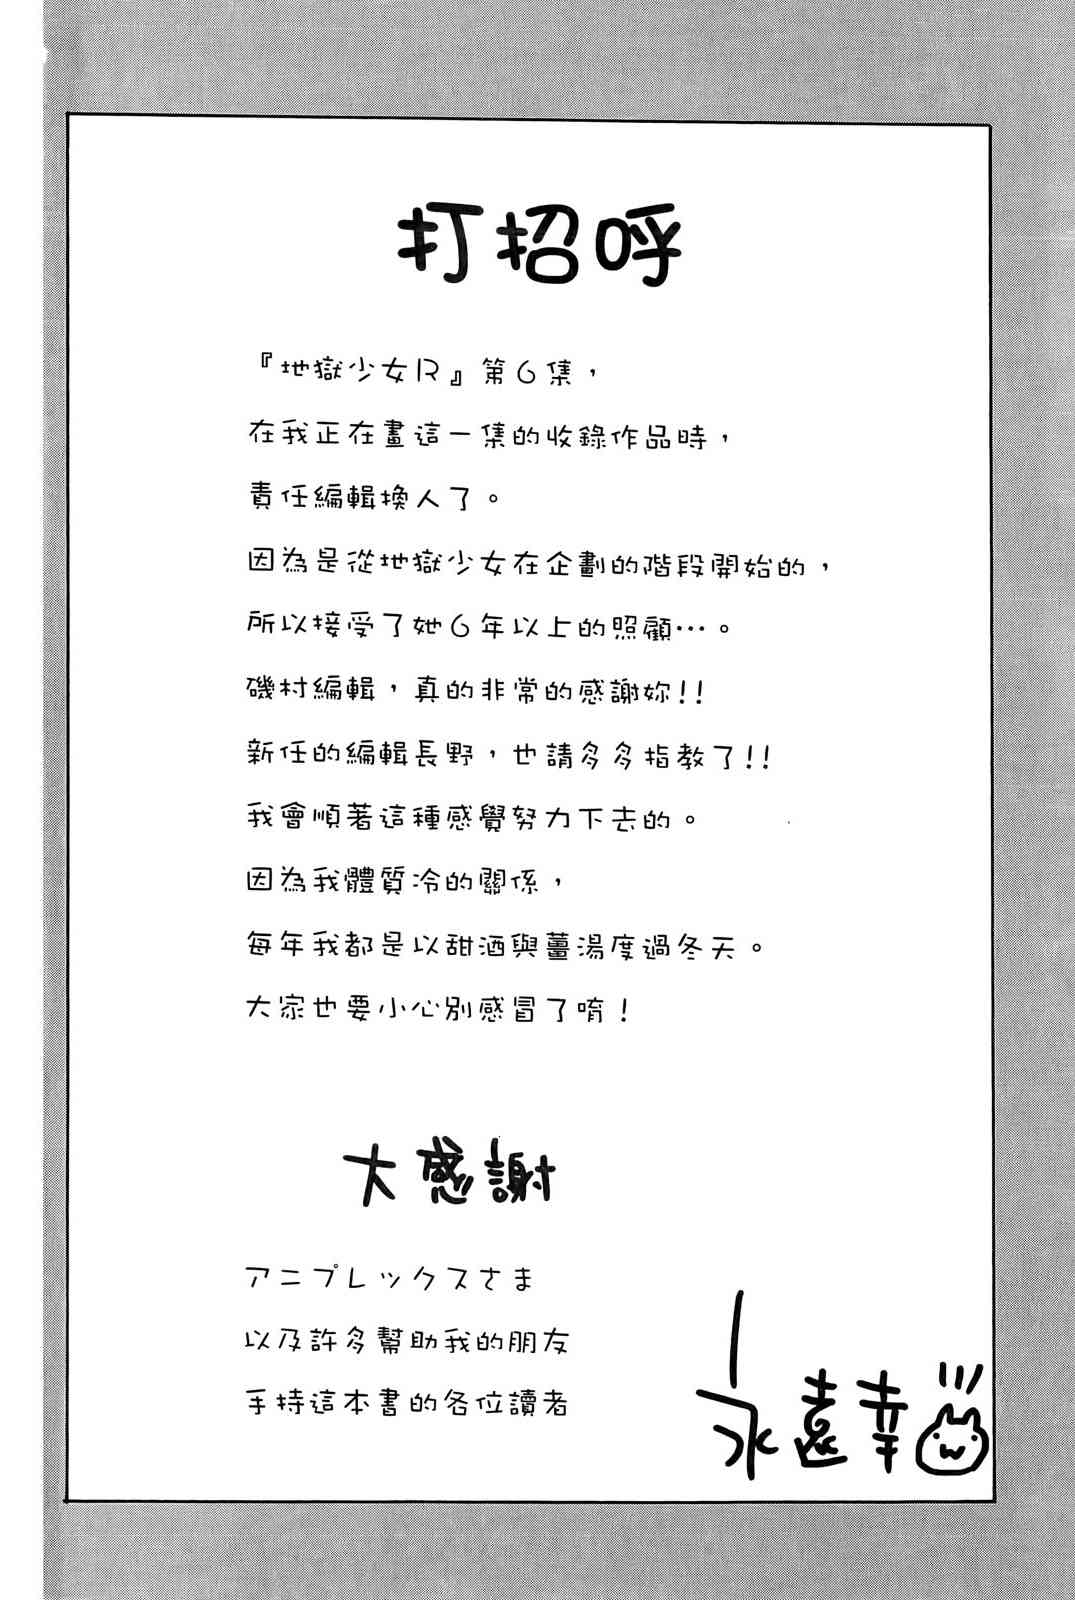 打招呼
『地獄少女R』第6集，
在我正在畫這一集的收錄作品時，
責任編輯換人了。
因為是從地獄少女在企劃的階段開始的，
所以接受了她6年以上的照顧…。
磯村編輯，真的非常的感謝妳!!
新任的編輯長野，也請多多指教了!!
我會順著這種感覺努力下去的。
因為我體質冷的關係，
每年我都是以甜酒與薑湯度過冬天。
大家也要小心別感冒了唷！
大感謝
アニプレックスさま
以及許多幫助我的朋友
手持這本書的各位讀者
永遠幸